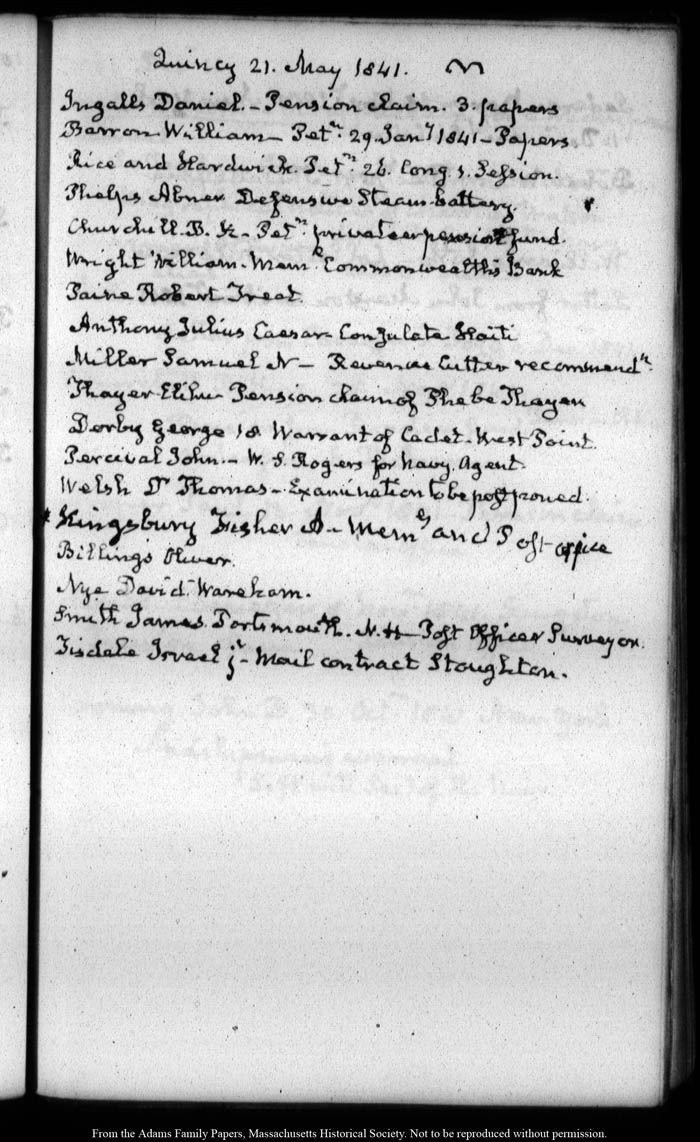 Quincy 21. May 1841.
Ingalls Daniel. - Pension claim. 3. papers
Barron William - Petn. 29. Jany 1841 - Papers
Rice and Hardwick. Petn. 26. Cong 1. Session.
Phelps Abner Defensive Steam-battery.
Churchill. B. K. - Petn. privateer pension fund.
Wright William. Meml. Commonwealth's Bank
Paine Robert Treat.
Anthony Julius Caesar - Consulate Haiti
Miller Samuel N - Revenue Cutter recommendn.
Thayer Elihu Pension claim of Phebe Thayer
Derby George 18 Warrant of Cadet - West Point.
Percival John. - W. S. Rogers for Navy Agent.
Welsh Dr Thomas - Examination to be postponed.
* Kingsbury Fisher A - Mem and Post office
Billings Oliver.
Nye David. Wareham.
Smith James. Portsmouth. N. H - Post Officer Surveyor.
Tisdale Israel jr - Mail contract Stoughton.
From the Adams Family Papers, Massachusetts Historical Society. Not to be reproduced without permission.